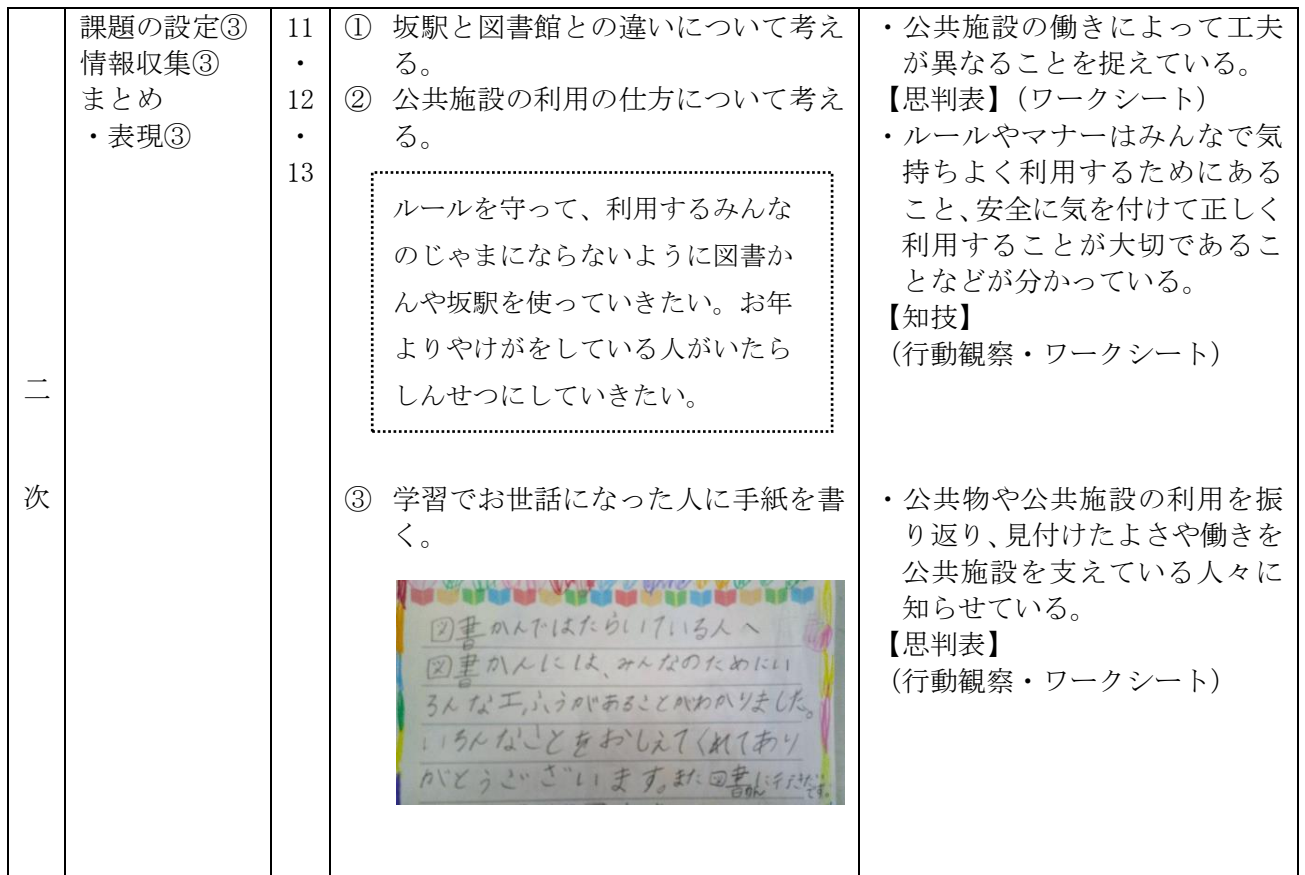 二
次
課題の設定③
情報収集③
まとめ
・表現③
11
・
12
・
13
① 坂駅と図書館との違いについて考え
る。
② 公共施設の利用の仕方について考え
る。
ルールを守って、利用するみんな
のじゃまにならないように図書か
んや坂駅を使っていきたい。お年
よりやけがをしている人がいたら
しんせつにしていきたい。
③ 学習でお世話になった人に手紙を書
く。
図書かんではたらいている人へ
図書かんには、みんなのためにい
ろんな工ふうがあることがわかりました。
いろんなことをおしえてくれてあり
がとうございます。また図書かんに行きたいです。
・公共施設の働きによって工夫
が異なることを捉えている。
【思判表】(ワークシート)
・ルールやマナーはみんなで気
持ちよく利用するためにある
こと、安全に気を付けて正しく
利用することが大切であるこ
となどが分かっている。
【知技】
(行動観察・ワークシート)
・公共物や公共施設の利用を振
り返り、見付けたよさや働きを
公共施設を支えている人々に
知らせている。
【思判表】
(行動観察・ワークシート)